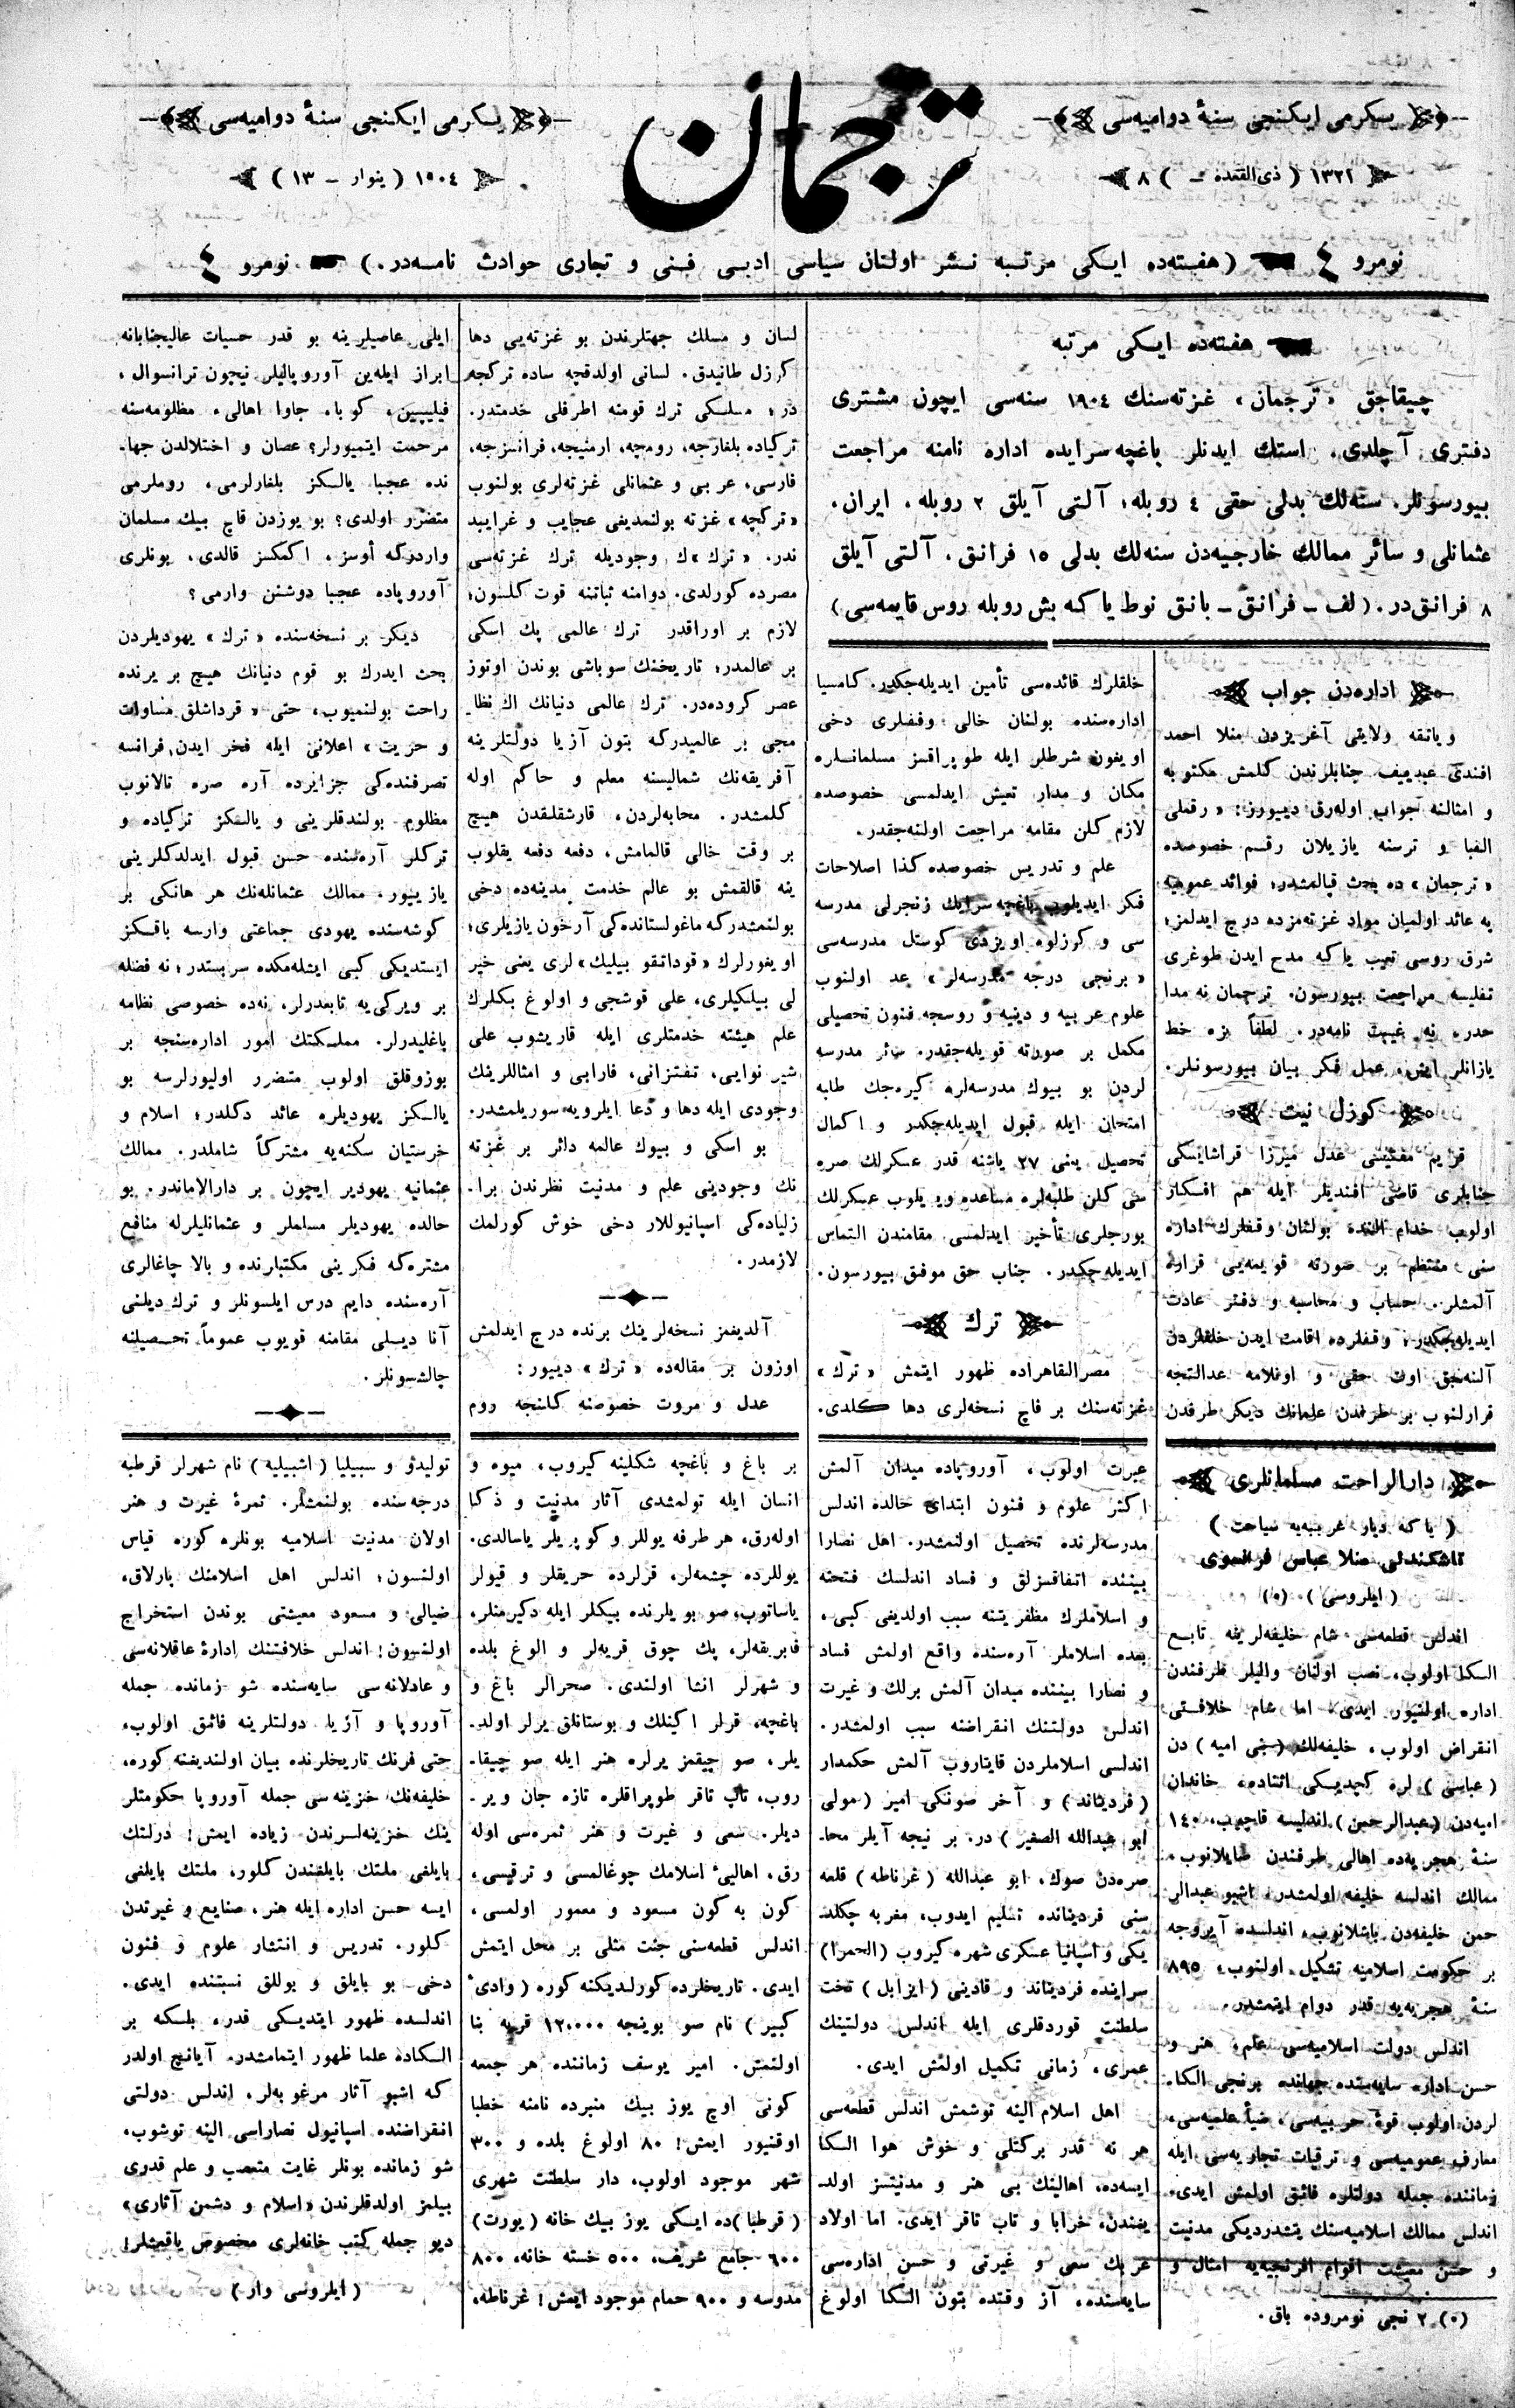 يكرمى ايكنجى سنهٔ دواميه‌سى
١٣٢١ ( ذى القعده – ) ٨
ترجمان
يكرمى ايكنجى سنهٔ دواميه‌سى
١٩٠٤ ( ينوار – ١٣ )
نومرو ٤ (هفته‌ده ايكى مرتبه نشر اولنان سياسى ادبى فنى و تجارى حوادث نامه‌در.) نومرو ٤
هفته‌ده ايكى مرتبه
چيقاجق «ترجمان» غزته‌سنك ١٩٠٤ سنه‌سى ايچون مشترى
دفترى آچلدى. استك ايدنلر باغچه سرايده اداره نامنه مراجعت
بيورسونلر. سنه‌لك بدلى حقى ٤ روبله؛ آلتى آيلق ٢ روبله. ايران،
عثمانلى و سائر ممالك خارجيه‌دن سنه‌لك بدلى ١٥ فرانق. آلتى آيلق
٨ فرانق‌در. (لف – فرانق – بانق نوط ياكه بش روبله روس قايمه‌سى)
اداره‌دن جواب
وياتقه ولايتى آغريزدن منلا احمد
افندى عبدييف جنابلرندن كلمش مكتوبه
و امثالنه جواب اوله‌رق دييورز: «رقملى
الفبا و ترسنه يازيلان رقم خصوصده
«ترجمان» ده بحث قيالمشدر؛ فوائد عموميه
يه عائد اولميان مواد غزته‌مزده درج ايدلمز؛
شرق روسى تعيب ياكه مدح ايدن طوغرى
تفليسه مراجعت بيورسون. ترجمان نه مدا
حدر، نه غيبت نامه‌در. لطفاً بزه خط
يازانلر ايش، عمل فكر بيان بيورسونلر.
كوزل نيت
قزيم مفتيسى عدل ميرزا قراشايسكى
جنابلرى قاضى افنديلر ايله هم افكار
اولوب خدام النده بولنان وقفلرك اداره
سنى منتظم بر صورته قويمه‌يى قراره
آلمشلر. حساب و محاسبه و دفتر عادت
ايديله‌جكدر؛ وقفلرده اقامت ايدن خلقلردن
آلنه‌جق اوت حقى و اونلامه عدالتجه
قرارلنوب بر طرفدن علمانك ديكر طرفدن
خلقلرك فائده‌سى تأمين ايديله‌جكدر. كامسيا
اداره‌سنده بولنان خالى وقفلرى دخى
اويغون شرطلر ايله طوپراقسز مسلمانلره
مكان و مدار تعيش ايدلمسى خصوصده
لازم كلن مقامه مراجعت اولنه‌جقدر.
علم و تدريس خصوصده كذا اصلاحات
فكر ايديلوب باغچه سرايك زنجرلى مدرسه
سى و كوزلوه اويزدى كوستل مدرسه‌سى
«برنجى درجه مدرسه‌لر» عد اولنوب
علوم عربيه و دينيه و روسجه فنون تحصيلى
مكمل بر صورته قويله‌جقدر. سائر مدرسه
لردن بو بيوك مدرسه‌لره كيره‌جك طلبه
امتحان ايله قبول ايديله‌جكدر و اكمال
تحصيل يعنى ٢٧ ياشنه قدر عسكرلك صره
سى كلن طلبه‌لره مساعده ويريلوب عسكرلك
بورجلرى تأخير ايدلمسى مقامندن التماس
ايديله‌جكدر. جناب حق موفق بيورسون.
ترك
مصر القاهراده ظهور ايتمش «ترك»
غزته‌سنك بر قاچ نسخه‌لرى دها كلدى.
لسان و مسلك جهتلرندن بو غزته‌يى دها
كوزل طانيدق. لسانى اولدقچه ساده تركجه
در؛ مسلكى ترك قومنه اطرفلى خدمتدر.
تركياده بلغارجه، رومچه، ارمنيجه، فرانسزجه،
فارسى، عربى و عثمانلى غزته‌لرى بولنوب
«تركچه» غزته بولنمديغى عجايب و غرايبد
ندر. «ترك»ك وجوديله ترك غزته‌سى
مصرده كورلدى. دوامنه ثباتنه قوت كلسون؛
لازم بر اوراقدر ترك عالمى پك اسكى
بر عالمدر؛ تاريخنك سوباشى بوندن اوتوز
عصر كروده‌در. ترك عالمى دنيانك اك نظا-
مجى بر عالميدركه بتون آزيا دولتلرينه
آفريقه‌نك شماليسنه معلم و حاكم اوله
كلمشدر. محابه‌لردن، قارشقلقدن هيچ
بر وقت خالى قالمامش، دفعه دفعه يقلوب
ينه قالقمش بو عالم خدمت مدينه‌ده دخى
بولنمشدركه ماغولستانده‌كى آرخون يازيلرى؛
اويغورلرك «قوداتقو بيليك»لرى يعنى خبر
لى بيلكيلرى، على قوشجى و اولوغ بكلرك
علم هيئته خدمتلرى ايله قاريشوب على
شير نوايى، تفتزانى، فارابى و امثاللرينك
وجودى ايله دها و دعا ايلرويه سوريلمشدر.
بو اسكى و بيوك عالمه دائر بر غزته
نك وجودينى علم و مدنيت نظرندن برا-
زلياده‌كى اسپانيوللار دخى خوش كورلمك
لازمدر.
آلديغمز نسخه‌لرينك برنده درج ايدلمش
اوزون بر مقاله‌ده «ترك» دييور:
عدل و مروت خصوصنه كلنجه روم
ايلى عاصيلرينه بو قدر حسيات عاليجنابانه
ابراز ايله‌ين آوروپاليلر نيچون ترانسوال،
فيليپين، كوبا، جاوا اهالىء مظلومه‌سنه
مرحمت ايتميورلر؟ عصان و اختلالدن جها-
نده عجبا يالكز بلغارلرمى، روملرمى
متضرر اولدى؟ بو يوزدن قاچ بيك مسلمان
واردركه أوسز، اكمكسز قالدى. بونلرى
آوروپاده عجبا دوشنن وارمى؟
ديكر بر نسخه‌سنده «ترك» يهوديلردن
بحث ايدرك بو قوم دنيانك هيچ بر يرنده
راحت بولنميوب، حتى «قرداشلق مساوات
و حريت» اعلانى ايله فخر ايدن فرانسه
تصرفنده‌كى جزايرده آره صره تالانوب
مظلوم بولندقلرينى و يالكز تركياده و
تركلر آره‌سنده حسن قبول ايدلدكلرينى
يازييور. ممالك عثمانله‌نك هر هانكى بر
كوشه‌سنده يهودى جماعتى وارسه باقكز
ايستديكى كبى ايشله‌مكده سربستدر؛ نه فضله
بر ويركى‌يه تابعدرلر، نه‌ده خصوصى نظامه
باغليدرلر. مملكتك امور اداره‌سنجه بر
بوزوقلق اولوب متضرر اوليورلرسه بو
يالكز يهوديلره عائد دكلدر؛ اسلام و
خرستيان سكنه‌يه مشتركاً شاملدر. ممالك
عثمانيه يهودير ايچون بر دارالاماندر. بو
حالده يهوديلر مسلملر و عثمانليلرله منافع
مشتركه فكرينى مكتبلرنده و بالا چاغالرى
آره‌سنده دايم درس ايلسونلر و ترك ديلنى
آنا ديلى مقامنه قويوب عموماً تحصيلنه
چالشسونلر.
دارالراحت مسلمانلرى
( ياكه ديار غربيه‌يه سياحت )
تاشكندلى منلا عباس فرانسوى
(ايلروسى) (٠)
اندلس قطعه‌سى شام خليفه‌لرينه تابع
الكا اولوب، نصب اولنان واليلر طرفندن
اداره اولنيور ايدى؛ اما شام خلافتى
انقراض اولوب، خليفه‌لك (بنى اميه) دن
(عباسى) لره كچديكى اثناده، خاندان
اميه‌دن (عبدالرحمن) اندليسه قاچوب، ١٤٠
سنهٔ هجريه‌ده اهالى طرفندن صايلانوب،
ممالك اندلسه خليفه اولمشدر. اشبو عبدالر
حمن خليفه‌دن باشلانوب، اندلسده آيروجه
بر حكومت اسلاميه تشكيل اولنوب، ٨٩٥
سنهٔ هجريه‌يه قدر دوام ايتمشدر.
اندلس دولت اسلاميه‌سى علم، هنر و
حسن اداره سايه‌سنده جهانده برنجى الكا-
لردن اولوب قوهٔ حربيه‌سى، ضيأ علميه‌سى،
معارف عموميه‌سى و ترقيات تجاريه‌سى ايله
زماننده جمله دولتلره فائق اولمش ايدى.
اندلس ممالك اسلاميه‌سنك يتشدرديكى مدنيت
و حسن معيشت اقوام افرنجيه‌يه امثال و
(٠) ٢ نجى نومروده باق.
عبرت اولوب، آوروپاده ميدان آلمش
اكثر علوم و فنون ابتداى حالده اندلس
مدرسه‌لرنده تحصيل اولنمشدر. اهل نصارا
بيننده اتفاقسزلق و فساد اندلسك فتحنه
و اسلاملرك مظفريتنه سبب اولديغى كبى،
بعده اسلاملر آره‌سنده واقع اولمش فساد
و نصارا بيننده ميدان آلمش برلك و غيرت
اندلس دولتنك انقراضنه سبب اولمشدر.
اندلسى اسلاملردن قايتاروب آلمش حكمدار
(فرديناند) و آخر صونكى امير (مولى
ابو عبدالله الصغير) در. بر نيجه آيلر محا-
صره‌دن صوك، ابو عبدالله (غرناطه) قلعه
سنى فردينانده تسليم ايدوب، مغربه چكلد-
يكى و اسپانيا عسكرى شهره كيروب (الحمرا)
سراينده فرديناند و قادينى (ايزابل) تخت
سلطنت قوردقلرى ايله اندلس دولتينك
عمرى، زمانى تكميل اولمش ايدى.
اهل اسلام الينه توشمش اندلس قطعه‌سى
هر نه قدر بركتلى و خوش هوا الكا
ايسه‌ده، اهالينك بى هنر و مدنيتسز اولد-
يغندن، خرابا و تاب تاقر ايدى. اما اولاد
عربك سعى و غيرتى و حسن اداره‌سى
سايه‌سنده، آز وقتده بتون الكا اولوغ
بر باغ و باغچه شكلينه كيروب، ميوه و
انسان ايله تولمشدى آثار مدنيت و ذكا
اوله‌رق، هر طرفه يوللر و كوپريلر ياسالدى.
يوللرده چشمه‌لر، قرلرده حريقلر و قيولر
ياساتوب، صو بويلرنده بيكلر ايله دكيرمنلر،
فابريقه‌لر، پك چوق قريه‌لر و الوغ بلده
و شهرلر انشا اولندى. صحرالر باغ و
باغچه، قرلر اكينلك و بوستانلق يرلر اولد-
يلر. صو چيقمز يرلره هنر ايله صو چيقا-
روب، تاپ تاقر طوپراقلره تازه جان وير-
ديلر. سعى و غيرت و هنر ثمره‌سى اوله
رق، اهالىء اسلامك چوغالمسى و ترقيسى،
كون به كون مسعود و معمور اولمسى،
اندلس قطعه‌سنى جنت مثلى بر محل ايتمش
ايدى. تاريخلرده كورلديكنه كوره (وادىٔ
كبير) نام صو بوينجه ١٢٠٠٠ قريه بنا
اولنمش. امير يوسف زماننده هر جمعه
كونى اوچ يوز بيك منبرده نامنه خطبا
اوقنيور ايمش! ٨٠ اولوغ بلده و ٣٠٠
شهر موجود اولوب، دار سلطنت شهرى
(قرطبا)ده ايكى يوز بيك خانه (يورت)
٦٠٠ جامع شريف، ٥٠٠ خسته خانه، ٨٠٠
مدرسه و ٩٠٠ حمام موجود ايمش! غرناطه،
توليدو و سبيليا (اشبيليه) نام شهرلر قرطبه
درجه‌سنده بولنمشلر. ثمرهٔ غيرت و هنر
اولان مدنيت اسلاميه بونلره كوره قياس
اولنسون؛ اندلس اهل اسلامنك پارلاق،
ضيالى و مسعود معيشتى بوندن استخراج
اولنسون! اندلس خلافتنك ادارهٔ عاقلانه‌سى
و عادلانه‌سى سايه‌سنده شو زمانده جمله
آوروپا و آزيا دولتلرينه فائق اولوب،
حتى فرنك تاريخلرنده بيان اولنديغنه كوره،
خليفه‌نك خزينه‌سى جمله آوروپا حكومتلر
ينك خزينه‌لرندن زياده ايمش! دولتك
بايلغى ملتك بايلغندن كلور، ملتك بايلغى
ايسه حسن اداره ايله هنر، صنايع و غيرتدن
كلور. تدريس و انتشار علوم و فنون
دخى بو بايلق و بوللق نسبتنده ايدى.
اندلسده ظهور ايتديكى قدر، بلكه بر
الكاده علما ظهور ايتمامشدر. آيانچ اولدر
كه اشبو آثار مرغوبه‌لر، اندلس دولتى
انقراضنده اسپانيول نصاراسى الينه توشوب،
شو زمانده بونلر غايت متعصب و علم قدرى
بيلمز اولدقلرندن «اسلام و دشمن آثارى»
ديو جمله كتب خانه‌لرى مخصوص ياقمشلر!
(ايلروسى وار)